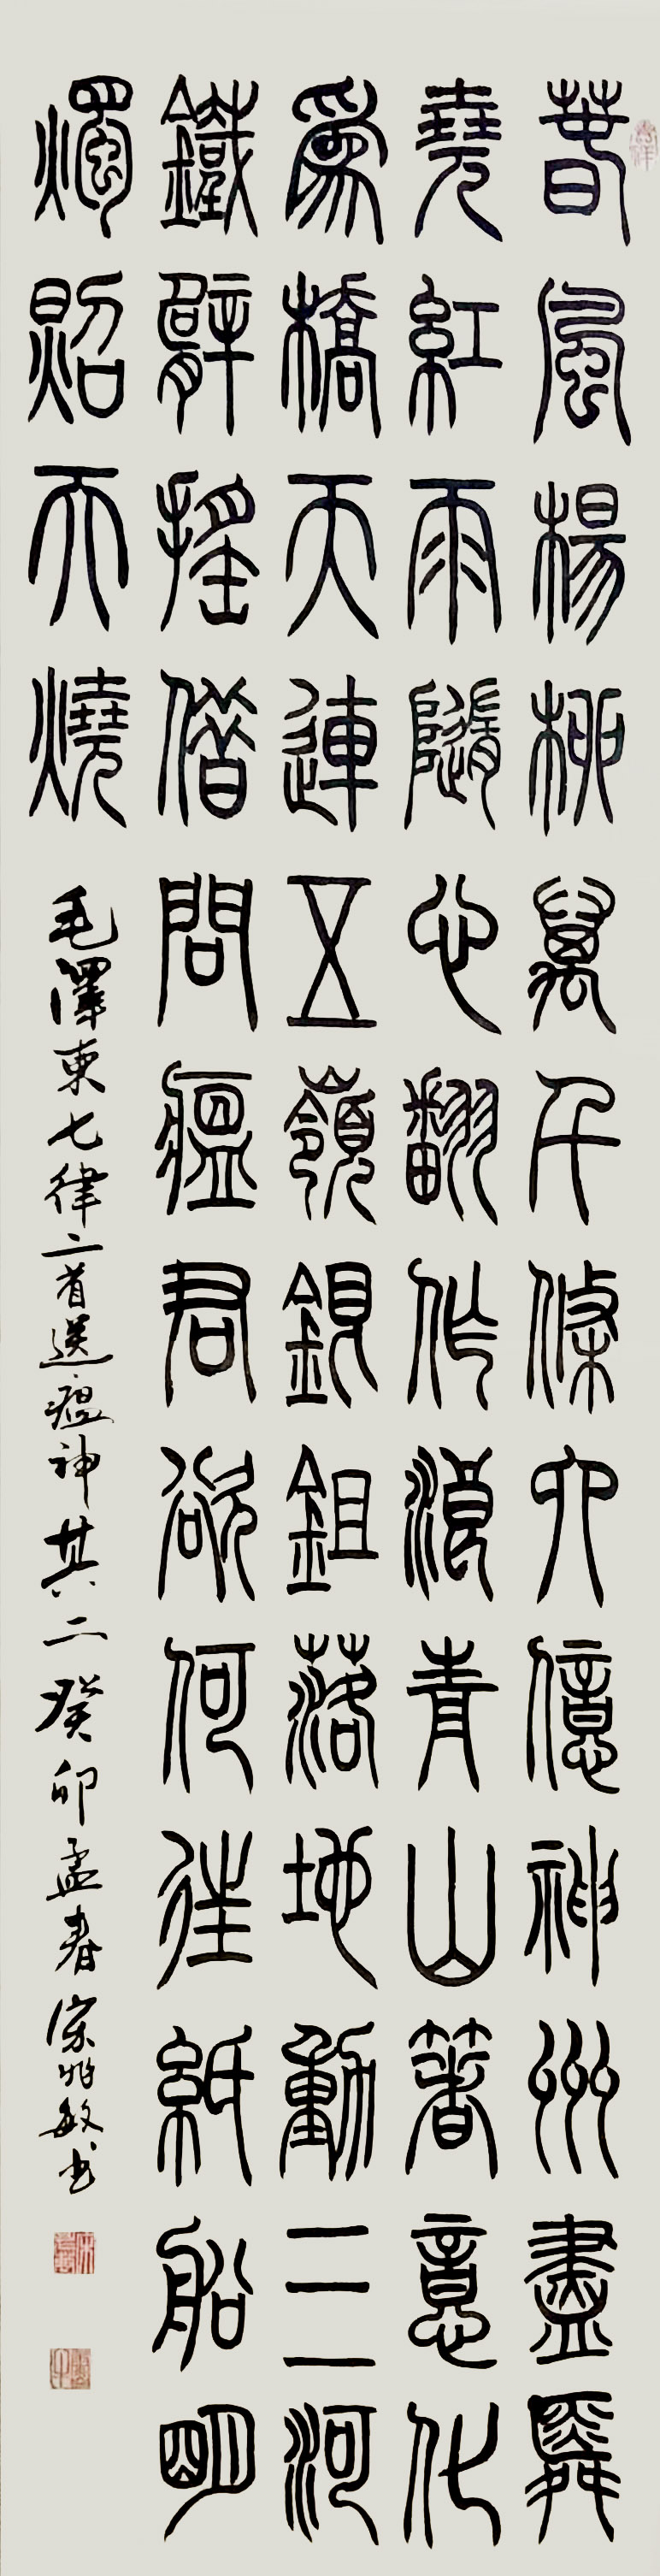 春風楊柳萬千條六億神州盡舜
堯紅雨隨心翻作浪青山箸意化
爲橋天連五嶺銀鉏落地動三河
鐵臂搖借問瘟君欲何往紙船明
燭照天燒
毛澤東七律二首送瘟神其二癸卯孟春宋兆敏书